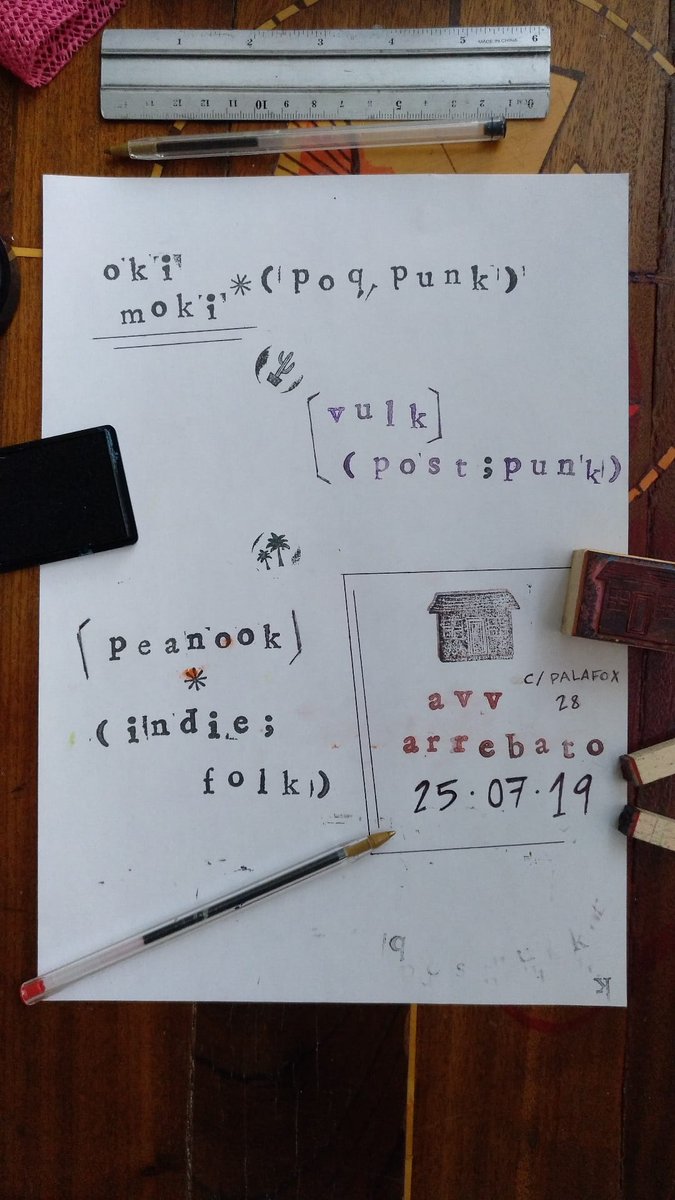 1 2 3 4 5 6
MADE IN CHINA
13 12 11 10 9 8 7 6 5 4 3 2 1 0
oki
moki * (poq, punk)
[vulk]
(post;punk)
[peanook)
*
(indie;
folk)
C/PALAFOX
28
avv
arrebato
25·07·19
q
k